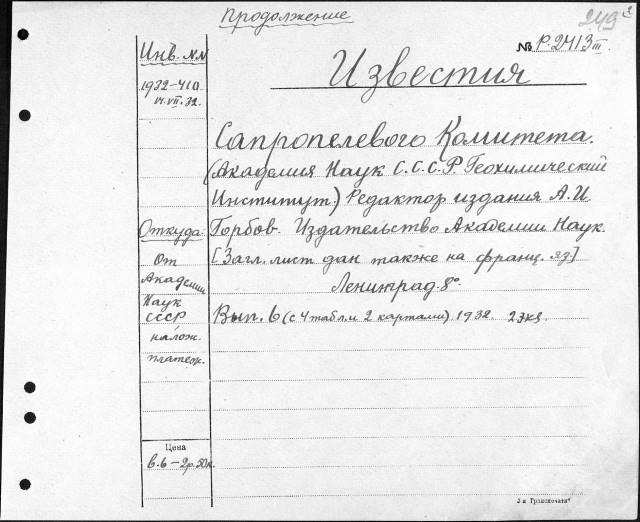 Продолжение
249
№ Р.2413 III.
Инв. NN
1932-410
14.VII.32.
Известия
Сапропелевого Комитета.
(Академия Наук С.С.С.Р. Геохимический
Институт.) Редактор издания А.И.
Горбов. Издательство Академии Наук.
[Загл. лист дан также на франц. яз.]
Ленинград. 8°.
Вып. 6 (с 4 табл. и 2 картами). 1932. 2 экз.
Откуда:
От
Академии
Наук
СССР
налож.
платеж.
Цена
в.6—2р.50к.